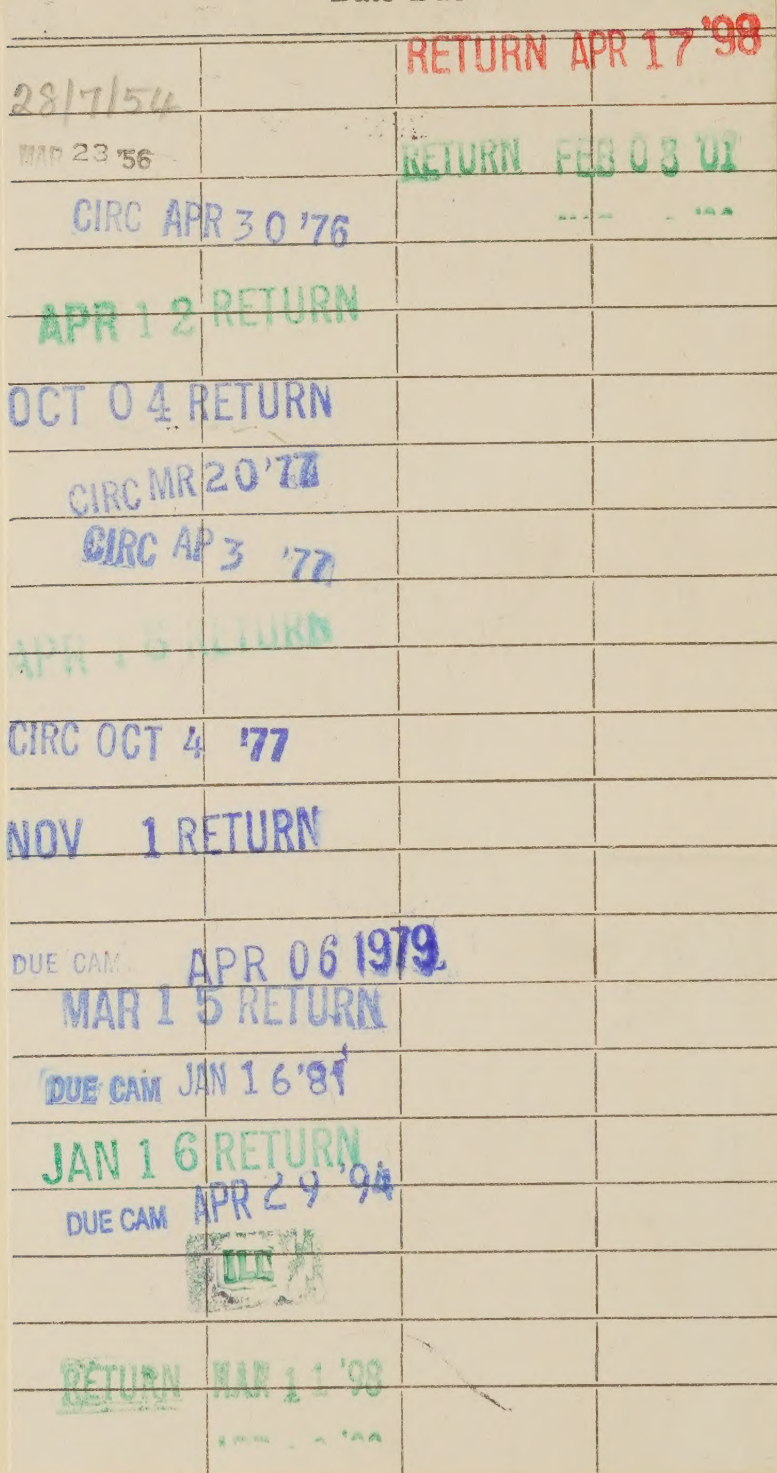 28/7/54
MAR 23 '56
CIRC APR 30 '76
APR 12 RETURN
OCT 04 RETURN
CIRC MR 20 '77
CIRC AP 3 '77
APR RETURN
CIRC OCT 4 '77
NOV 1 RETURN
DUE CAM APR 06 1979
MAR 15 RETURN
DUE CAM JAN 16 '81
JAN 16 RETURN
DUE CAM APR 29 '94
ILL
RETURN MAR 11 '98
RETURN APR 17 '98
RETURN FEB 08 '01